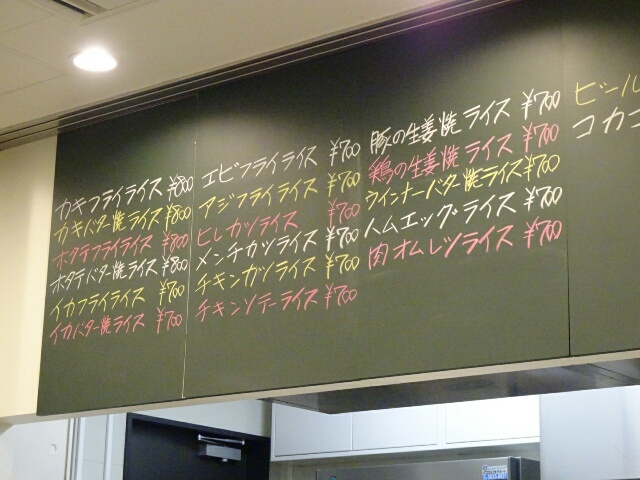 カキフライライス ¥800
カキバター焼ライス ¥800
ホタテフライライス ¥800
ホタテバター焼ライス ¥800
イカフライライス ¥700
イカバター焼ライス ¥700
エビフライライス ¥700
アジフライライス ¥700
ヒレカツライス ¥700
メンチカツライス ¥700
チキンカツライス ¥700
チキンソテーライス ¥700
豚の生姜焼ライス ¥700
鶏の生姜焼ライス ¥700
ウインナーバター焼ライス ¥700
ハムエッグライス ¥700
肉オムレツライス ¥700
ビール
コカコ